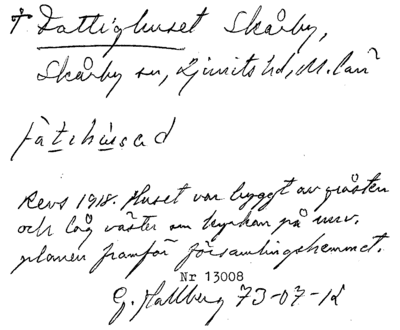 † Fattighuset Skårby,
Skårby sn, Ljunits hd, M. län
fàtihùsad
Revs 1918. Huset var byggt av gråsten
och låg väster om kyrkan på nuv.
planen framför församlingshemmet.
Nr 13008
G. Hallberg 73-07-12